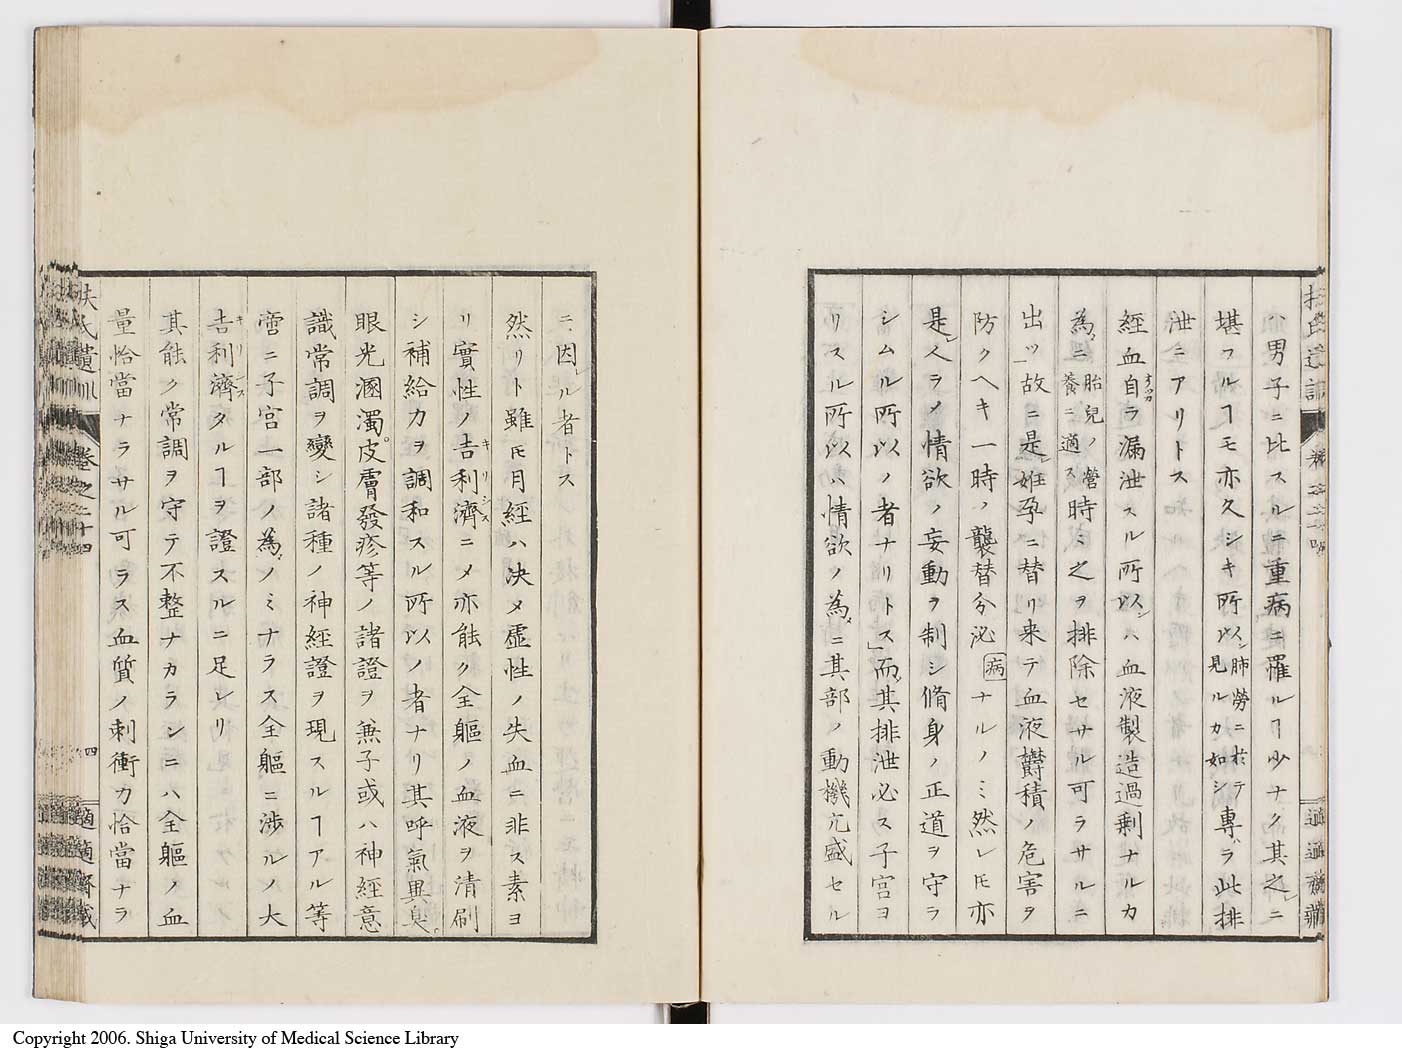 ハ男子ニ比スルニ重病ニ罹ルヿ少ナク其之レニ
堪フルヿモ亦久シキ所以ン肺勞ニ於テ見ルカ如シ專ハラ此排
泄ニアリトス
經血自ラ漏泄スル所以ンハ血液製造過剰ナルカ
為メニ胎兒ノ營養ニ適ス時ミ之ヲ排除セサル可ラサルニ
出ツ」故ニ是レ姙孕ニ替リ来テ血液欝積ノ危害ヲ
防クヘキ一時ノ襲替分泌病ナルノミ然レ𪜈亦
是レ人ヲメ情欲ノ妄動ヲ制シ脩身ノ正道ヲ守ラ
シムル所以ノ者ナリトス」而メ其排泄必ス子宮ヨ
リスル所以ハ情欲ノ為メニ其部ノ動機亢盛セル
ニ因ル者トス
然リト雖𪜈月經ハ决メ虚性ノ失血ニ非ス素ヨ
リ實性ノ吉利濟キリシスニメ亦能ク全軀ノ血液ヲ清刷
シ補給力ヲ調和スル所以ノ者ナリ其呼氣異臭。
眼光溷濁。皮膚發疹等ノ諸證ヲ兼子或ハ神經意
識常調ヲ變シ諸種ノ神經證ヲ現スルヿアル等
啻ニ子宮一部ノ為メノミナラス全軀ニ渉ルノ大
吉利濟キリシスタルヿヲ證スルニ足レリ
其能ク常調ヲ守テ不整ナカランニハ全軀ノ血
量恰當ナラサル可ラス血質ノ刺衝力恰當ナラ
扶氏遺訓 卷之二十四 四 適適齋藏
Copyright 2006. Shiga University of Medical Science Library